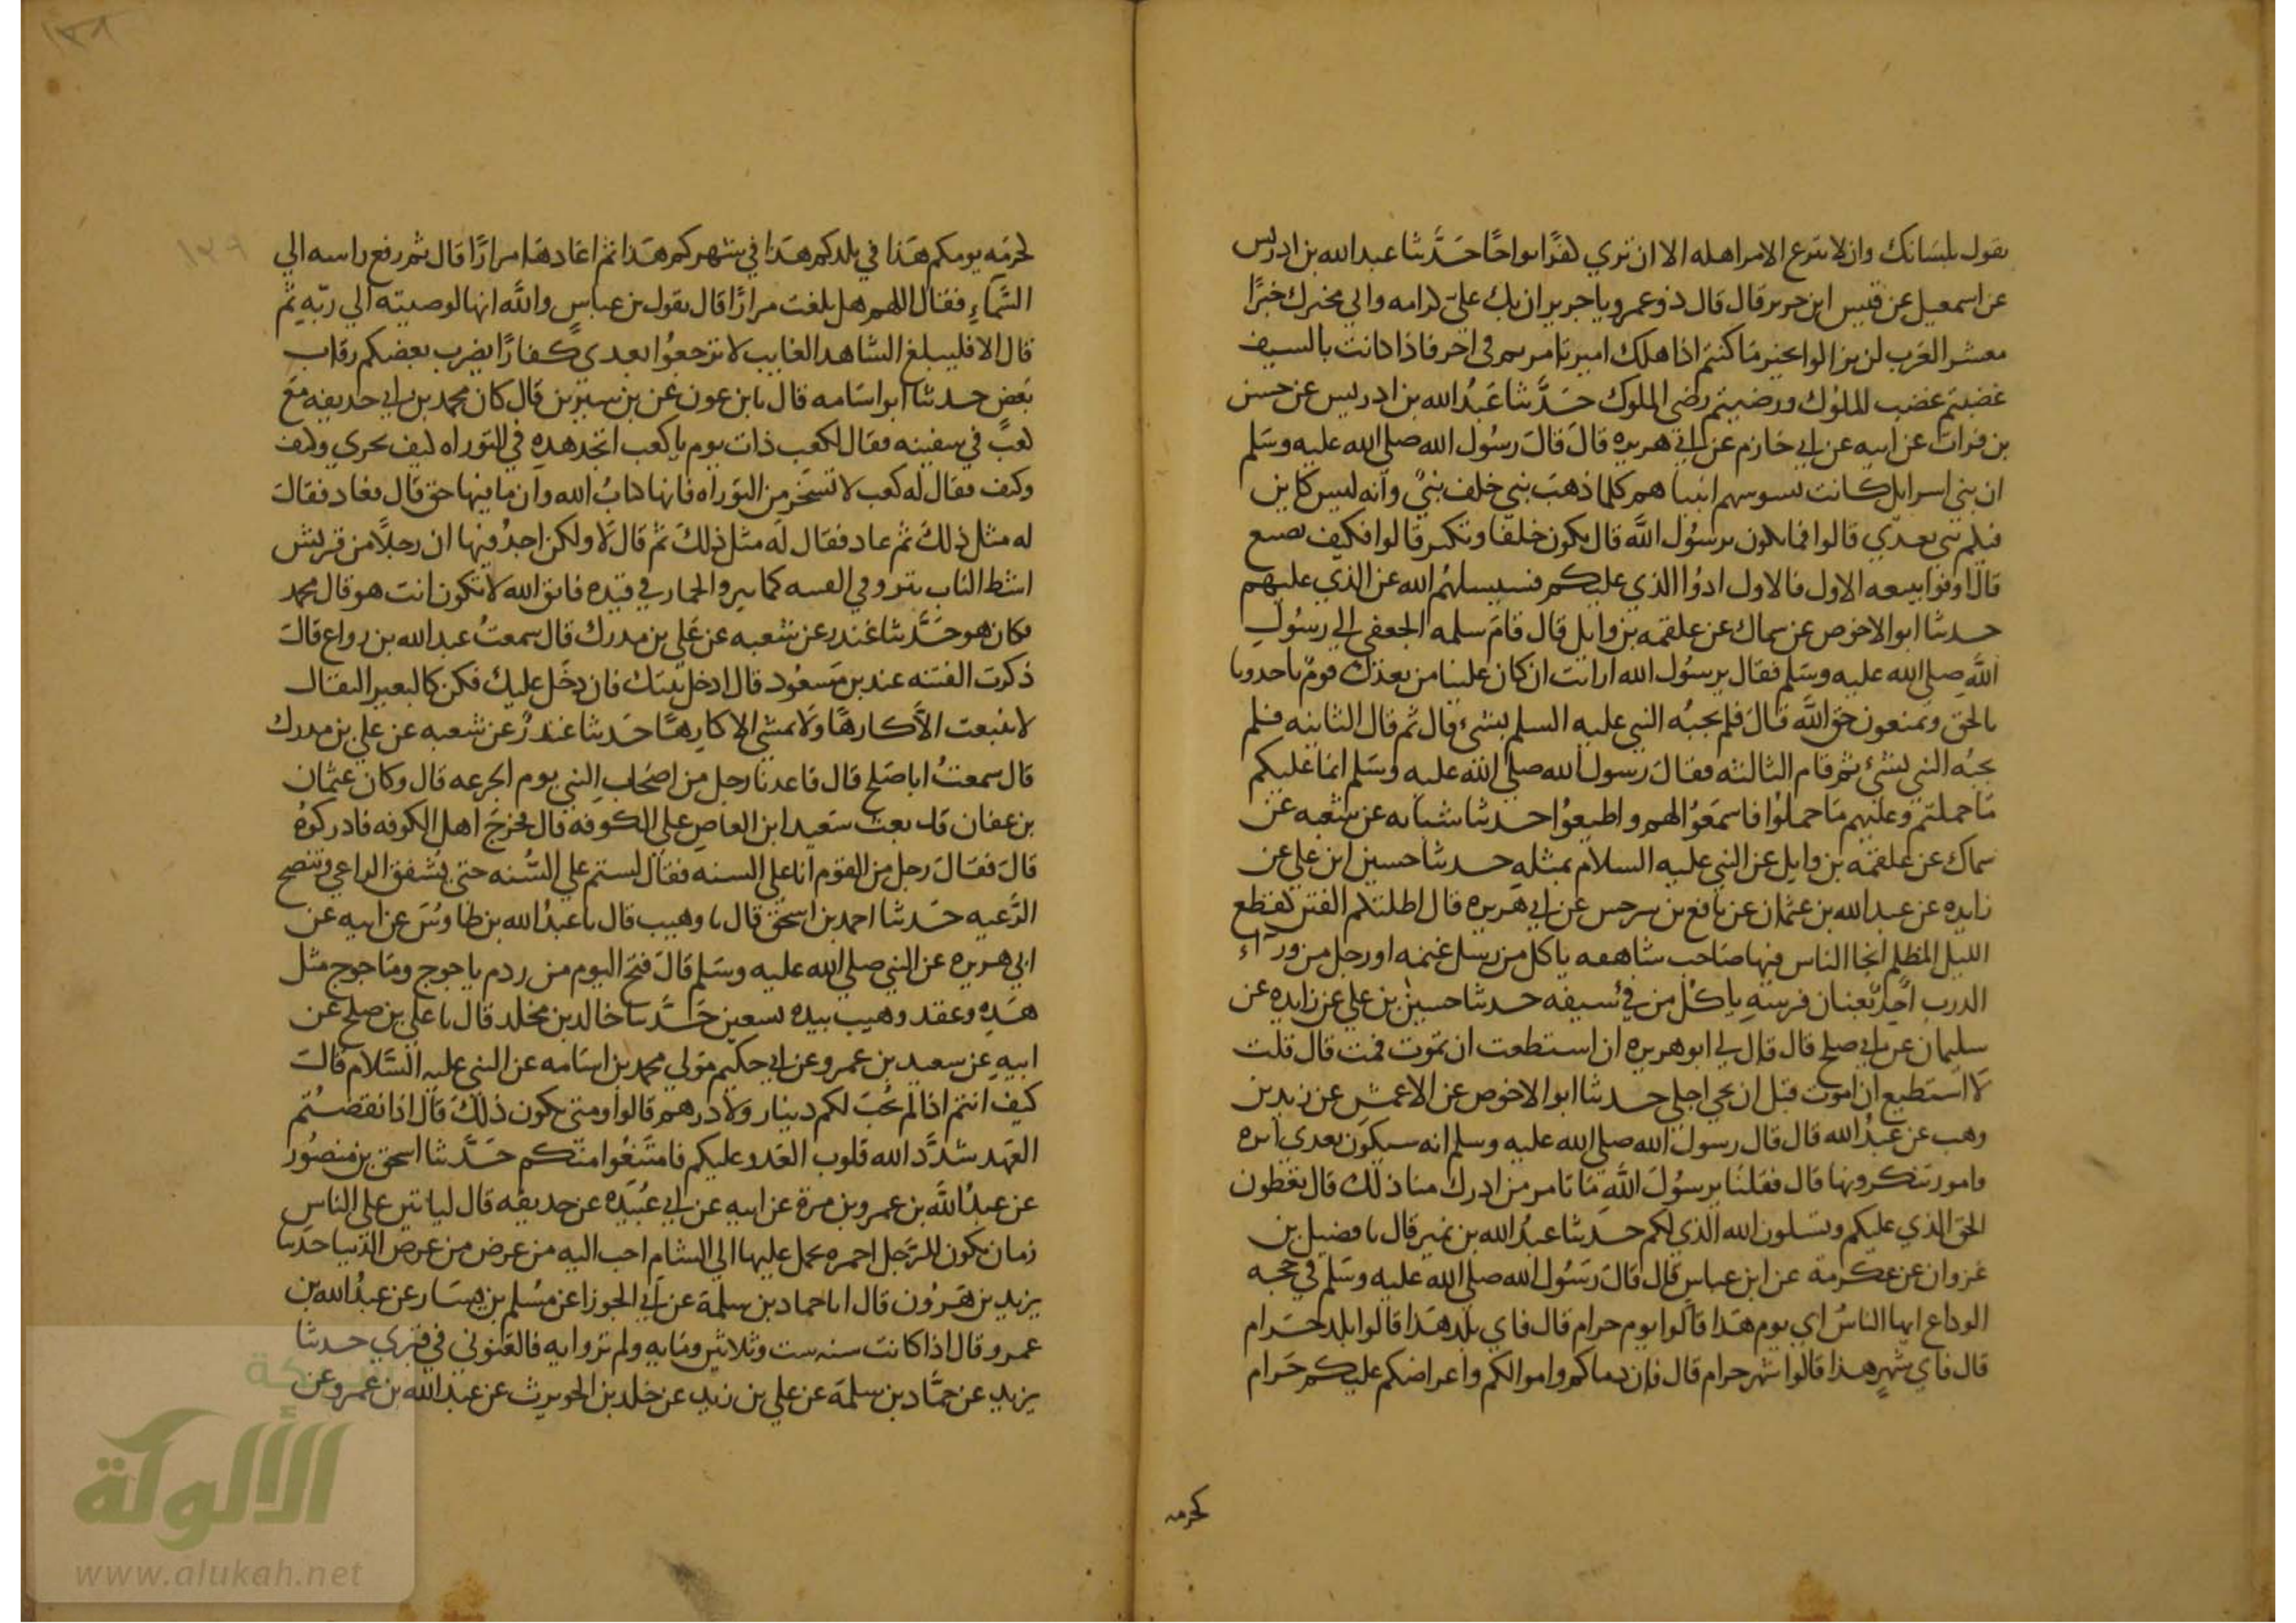 يقول بلسانك وان لا تنزع الامر اهله الا ان تري كفرا بواحا حدثنا عبد الله بن ادريس
عن اسمعيل عن قيس ابن جرير قال قال ذو عمرو يا جرير ان بك علي كرامه واني مخبرك خبرا
معشر العرب لن يزالوا بخير ما كنتم اذا هلك امير تامرتم في اخر فاذا كانت بالسيف
غضبتم غضب الملوك ورضيتم رضى الملوك حدثنا عبد الله بن ادريس عن حسن
بن فرات عن ابيه عن ابي حازم عن ابي هريره قال قال رسول الله صلى الله عليه وسلم
ان بني اسرايل كانت تسوسهم انبياهم كلما ذهب نبي خلف نبي وانه ليس كاين
فيكم نبي بعدي قالوا فما يكون يرسول الله قال يكون خلفا وتكثر قالوا فكيف نصنع
قال اوفوا ببيعه الاول فالاول ادوا الذي عليكم فسيسلهم الله عن الذي عليهم
حدثنا ابو الاحوص عن سماك عن علقمه بن وايل قال قام سلمه الجعفي الي رسول
الله صلى الله عليه وسلم فقال يرسول الله ارايت ان كان علينا من بعدك قوم ياخدونا
بالحق ويمنعون حق الله قال فلم يجبه النبي عليه السلم بشيء قال ثم قال الثانيه فلم
يجبه النبي بشيء ثم قام الثالثه فقال رسول الله صلى الله عليه وسلم انما عليكم
ما حملتم وعليهم ما حملوا فاسمعوا لهم واطيعوا حدثنا شبابه عن شعبه عن
سماك عن علقمه بن وايل عن النبي عليه السلام بمثله حدثنا حسين ابن علي عن
زايده عن عبد الله بن عثمان عن نافع بن سرجس عن ابي هريره قال اظلتكم الفتن كقطع
الليل المظلم انجا الناس فيها صاحب شاهقه ياكل من رسل غنمه او رجل من وراء
الدرب اخذ بعنان فرسه ياكل من في سيفه حدثنا حسين بن علي عن زايده عن
سليمان عن ابي صلح قال قال لي ابو هريره ان استطعت ان تموت فمت قال قلت
لا استطيع ان اموت قبل ان يجي اجلي حدثنا ابو الاحوص عن الاعمش عن زيد بن
وهب عن عبد الله قال قال رسول الله صلى الله عليه وسلم انه سيكون بعدي اثره
وامور تنكرونها قال فقلنا يرسول الله ما تامر من ادرك منا ذلك قال تعطون
الحق الذي عليكم وتسلون الله الذي لكم حدثنا عبد الله بن نمير قال نا فضيل بن
غزوان عن عكرمة عن ابن عباس قال قال رسول الله صلى الله عليه وسلم في حجه
الوداع ايها الناس اي يوم هذا قالوا يوم حرام قال فاي بلد هذا قالوا بلد حرام
قال فاي شهر هذا قالوا شهر حرام قال فان دماكم واموالكم واعراضكم عليكم حرام
كحرمه
١٣٩
كحرمه يومكم هذا في بلدكم هذا في شهركم هذا ثم اعادها مرارا قال ثم رفع راسه الي
السماء فقال اللهم هل بلغت مرارا قال يقول بن عباس والله انها لوصيته الي ربه ثم
قال الا فليبلغ الشاهد الغايب لا ترجعوا بعدي كفارا يضرب بعضكم رقاب
بعض حدثنا ابو اسامه قال نا بن عون عن بن سيرين قال كان محمد بن ابي حديفه مع
كعب في سفينه فقال لكعب ذات يوم يا كعب اتجد هده في التوراه كيف تجري وكيف
وكيف فقال له كعب لا تسخر من التوراه فانها كتاب الله وان ما فيها حق قال فعاد فقال
له مثل ذلك ثم عاد فقال له مثل ذلك ثم قال لا ولكن اجد فيها ان رجلا من قريش
اشط الناب ينزو في الفتنه كما ينزو الحمار في قيده فاتق الله لا تكون انت هو قال محمد
فكان هو حدثنا غندر عن شعبه عن علي بن مدرك قال سمعت عبد الله بن رواع قال
ذكرت الفتنه عند بن مسعود قال ادخل بيتك فان دخل عليك فكن كالبعير الثفال
لا ينبعث الا كارها ولا يمشي الا كارها حدثنا غندر عن شعبه عن علي بن مدرك
قال سمعت ابا صلح قال قاعدنا رجل من اصحاب النبي يوم الجرعه قال وكان عثمان
بن عفان قد بعث سعيد ابن العاص علي الكوفه قال فخرج اهل الكوفه فادركوه
قال فقال رجل من القوم انا على السنه فقال لستم علي السنه حتى يشفق الراعي وتنصح
الرعيه حدثنا احمد بن اسحق قال نا وهيب قال نا عبد الله بن طاوس عن ابيه عن
ابي هريره عن النبي صلي الله عليه وسلم قال فتح اليوم من ردم ياجوج وماجوج مثل
هذه وعقد وهيب بيده تسعين حدثنا خالد بن مخلد قال نا علي بن صلح عن
ابيه عن سعيد بن عمرو عن ابي حكيم مولي محمد بن اسامه عن النبي عليه السلام قال
كيف انتم اذا لم يجب لكم دينار ولا درهم قالوا ومتى يكون ذلك قال اذا نقضتم
العهد شدد الله قلوب العدو عليكم فامتنعوا منكم حدثنا اسحق بن منصور
عن عبد الله بن عمرو بن مرة عن ابيه عن ابي عبيده عن حديفه قال لياتين علي الناس
زمان يكون للرجل احمره يحمل عليها الي الشام احب اليه من عرض من عرض الدنيا حدثنا
يزيد بن هرون قال انا حماد بن سلمة عن ابي الجوزا عن مسلم بن يسار عن عبد الله بن
عمرو قال اذا كانت سنه ست وثلاثين ومايه ولم تروا ايه فالعنوني في قبري حدثنا
يزيد عن حماد بن سلمة عن علي بن زيد عن خلد بن الحويرث عن عبد الله بن عمرو عن
شبكة
الألوكة
www.alukah.net